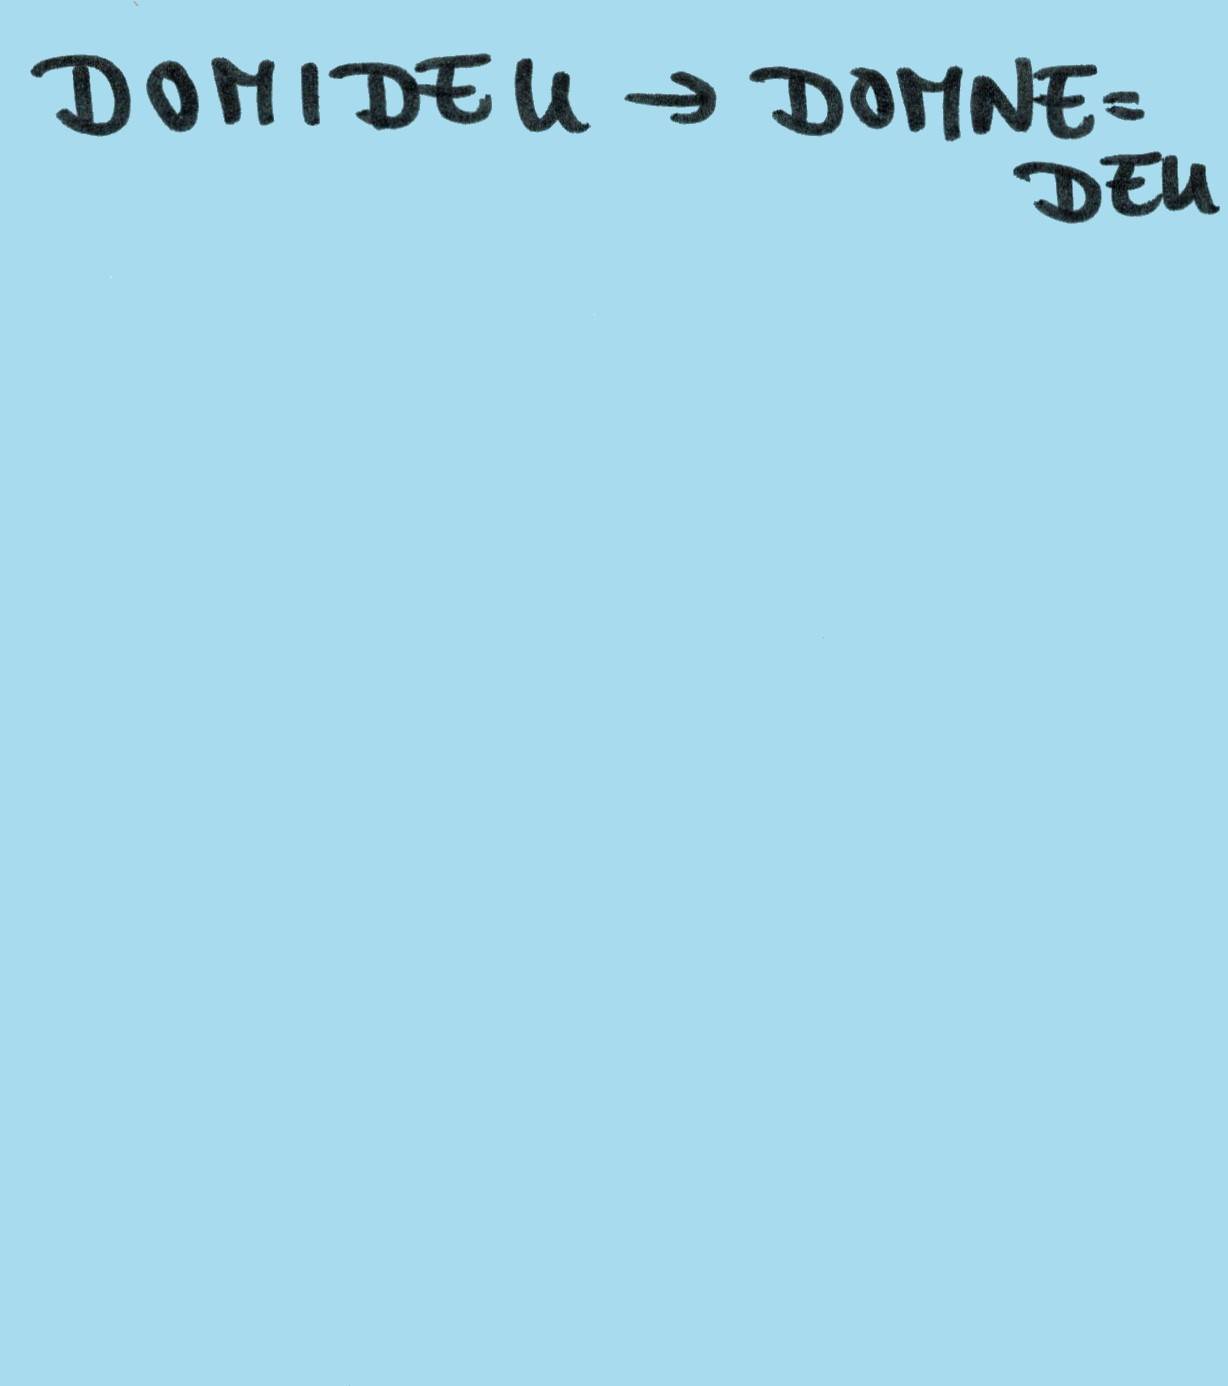 DOMIDEU → DOMNE=
DEU